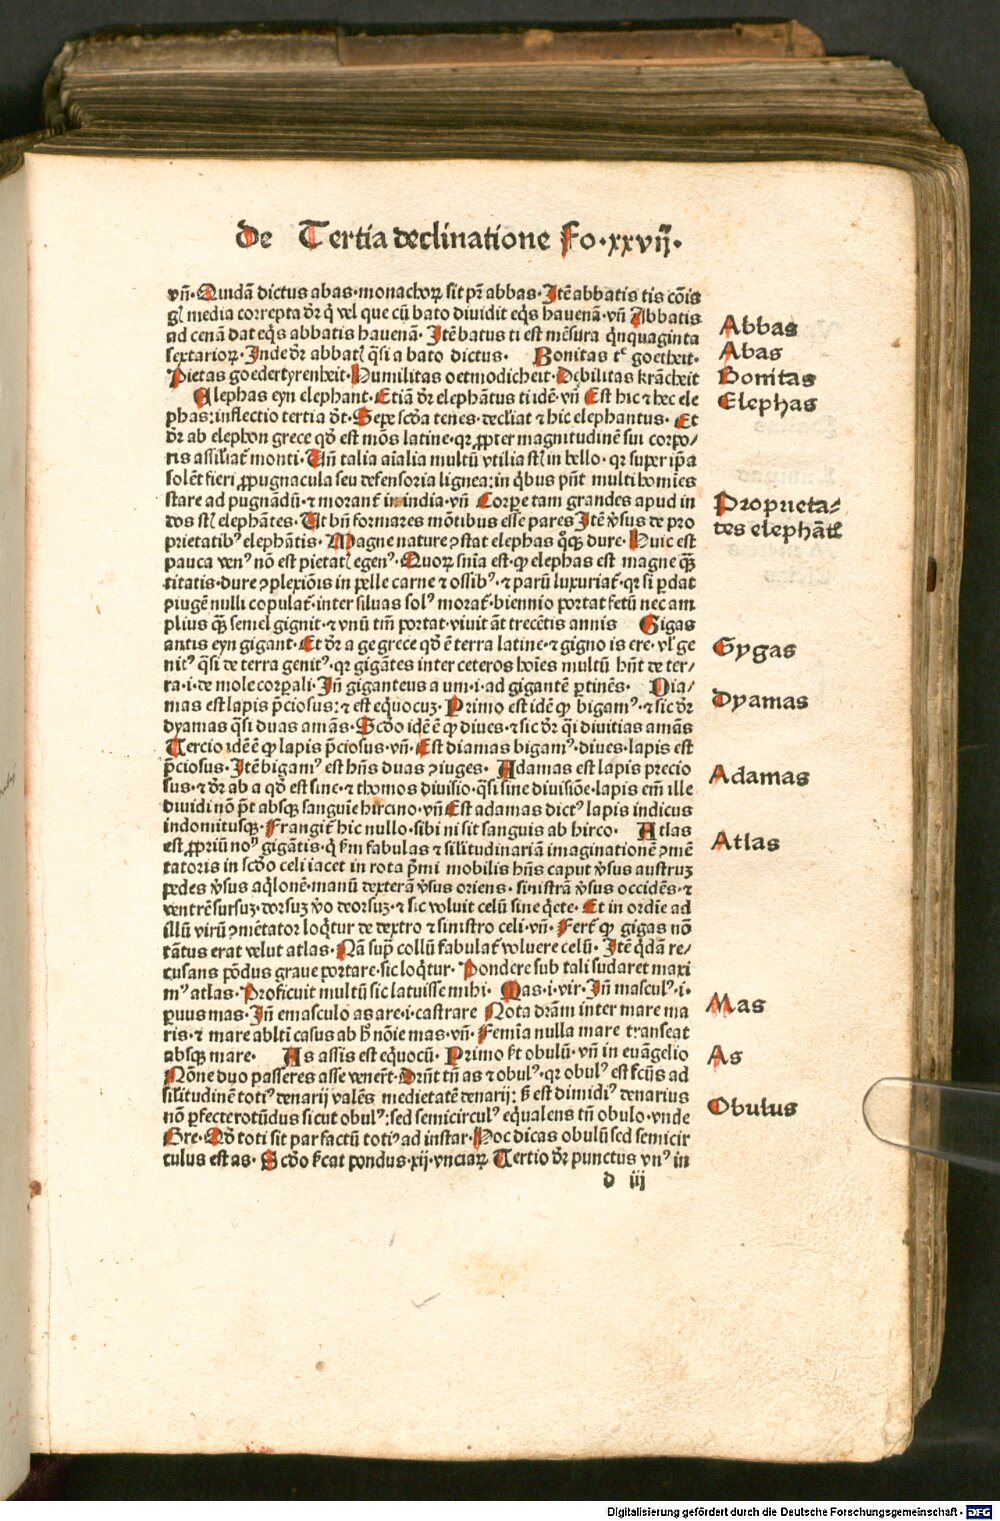 De Tertia declinatione Fo·xxvij·
vñ·Quidã dictus abas·monachoꝝ sit pr̃ abbas·Itẽ abbatis tis cõis
gͥ media correpta dr̃ q̇ vel que cũ bato diuidit eq̇s hauenã·vñ Abbatis
ad cenã dat eq̇s abbatis hauenã· Itẽ batus ti est mẽsura q̇nquaginta
sextarioꝝ·Inde dr̃ abbatꝭ q̃si a bato dictus· Bonitas tꝭ goetheit·
Pietas goedertyrenheit·Humilitas oetmodicheit·Debilitas krãcheit
Alephas eyn elephant·Etiã dr̃ elephãtus ti idẽ·vñ Est hic ⁊ hec ele
phas:inflectio tertia dt̃·Sepe scḋa tenes·decliat ⁊ hic elephantus· Et
dr̃ ab elephon grece qḋ est mõs latine·qꝛ ꝓpter magnitudinẽ sui corpo/
ris assiliat᷑ monti·Vñ talia aĩalia multũ vtilia st̃ in bello·qꝛ super ip̃a
solẽt fieri ꝓpugnacula seu defensoria lignea:in q̇bus pñt multi homĩes
stare ad pugnãdũ·⁊ morant᷑ in india·vñ Corpe tam grandes apud in
dos st̃ elephãtes·Ut bñ formares mõtibus esse pares Itẽ v̉sus de pro
prietatibꝰ elephãtis· Magne nature ꝯstat elephas q̇ꝙ dure·Huic est
pauca venꝰ nõ est pietatꝭ egenꝰ·Quoꝝ sñia est·ꝙ elephas est magne quã
titatis·dure ꝯplexiõis in pelle carne ⁊ ossibꝰ·⁊ parũ luxuriat᷑·qꝛ si ꝑdat
ꝯiugẽ nulli copulat᷑·inter siluas solꝰ morat᷑·biennio portat fetũ nec am
plius quã semel gignit·⁊ vnũ tm̃ portat·viuit ãt trecẽtis annis Gigas
antis eyn gigant·Et dr̃ a ge grece qḋ ẽ terra latine·⁊ gigno is ere·vl̉ ge
nitꝰ q̃si de terra genitꝰ·qꝛ gigãtes inter ceteros hoĩes multũ hñt de ter/
ra·i·de mole corꝑali·Iñ giganteus a um·i·ad gigantẽ ꝑtinẽs· Dia/
mas est lapis p̃ciosus:⁊ est equocuꝫ·Primo est idẽ ꝙ bigamꝰ·⁊ sic dr̃
dyamas q̃si duas amãs·Scḋo idẽ ẽ ꝙ diues·⁊ sic dr̃ q̃i diuitias amãs
Tercio idẽ ẽ ꝙ lapis p̃ciosus·vñ·Est diamas bigamꝰ·diues·lapis est
p̃ciosus·Itẽ bigamꝰ est hñs duas ꝯiuges· Adamas est lapis precio
sus·⁊ dr̃ ab a qḋ est sine·⁊ thomos diuisio·q̃si sine diuisiõe·lapis em̃ ille
diuidi nõ p̃t absqꝫ sanguĩe hircino·vñ Est adamas dictꝰ lapis indicus
indomitusqꝫ·Frangit᷑ hic nullo·sibi ni sit sanguis ab hirco· Atlas
est ꝓpriũ noꝰ gigãtis·q̇ ẜm fabulas ⁊ silitudinariã imaginationẽ ꝯmẽ
tatoris in scḋo celi iacet in rota p̃mi mobilis hñs caput v̉sus austruꝫ
pedes v̉sus aq̇lonẽ·manũ dexterã v̉sus oriens·sinistrã v̉sus occidẽs·⁊
ventrẽ sursuꝫ·dorsuꝫ v̉o deorsuꝫ·⁊ sic voluit celũ sine q̇ete·Et in ordĩe ad
illũ virũ ꝯmẽtator loq̇tur de dextro ⁊ sinistro celi·vñ·Fert᷑ ꝙ gigas nõ
tãtus erat velut atlas·Nã sup̃ collũ fabulat᷑ voluere celũ· Itẽ q̇dã re/
cusans põdus graue portare·sic loq̇tur·Pondere sub tali sudaret maxi
mꝰ atlas·Proficuit multũ sic latuisse mihi· Mas·i·vir·Iñ masculꝰ·i·
ꝑuus mas·Iñ emasculo as are·i·castrare Nota dr̃am inter mare ma
ris·⁊ mare ablti casus ab h̉ nõie mas·vñ·Femĩa nulla mare transeat
absqꝫ mare· As assis est eq̇uocũ·Primo ẜt obulũ·vñ in euãgelio
Nõne duo passeres asse veneũt·Drñt tñ as ⁊ obulꝰ·qꝛ obulꝰ est fc̃us ad
silitudinẽ totiꝰ denarij valẽs medietatẽ denarij:ẜ est dimidiꝰ denarius
nõ ꝑfecte rotũdus sicut obulꝰ:sed semicirculꝰ equalens tñ obulo·vnde
Gre·Qḋ toti sit par factũ totiꝰ ad instar·Hoc dicas obulũ sed semicir
culus est as·Scḋo ẜcat pondus·xij·vnciaꝝ Tertio dr̃ punctus vnꝰ in
d iij
Abbas
Abas
Bonitas
Elephas
Proprieta⸗
tes elephãtꝭ
Gygas
Dyamas
Adamas
Atlas
Mas
As
Obulus
Digitalisierung gefördert durch die Deutsche Forschungsgemeinschaft - DFG